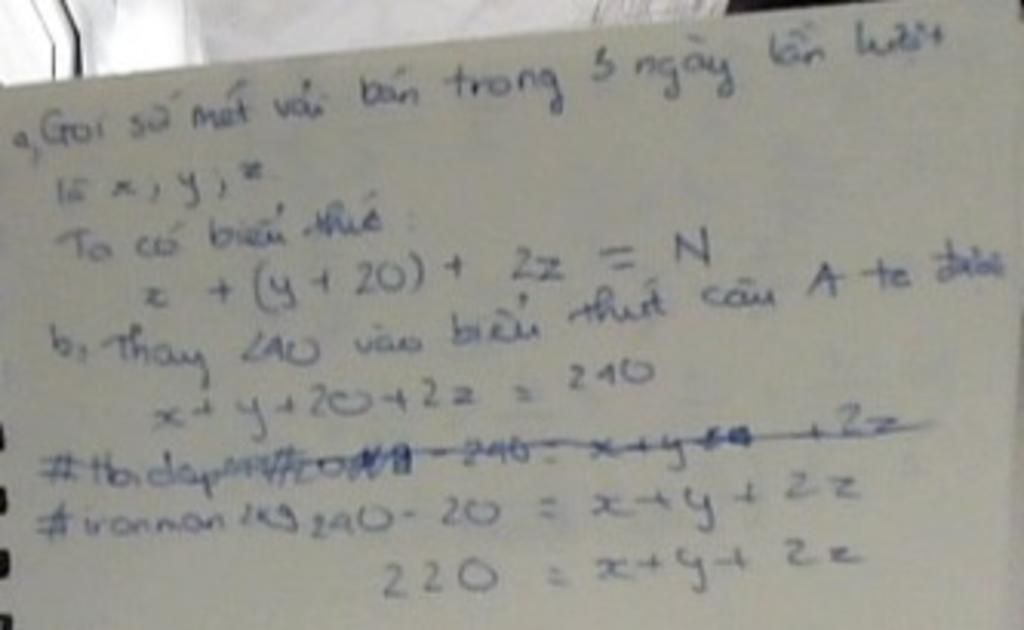 a, Gọi số mét vải bán trong 3 ngày lần lượt
là x, y, z
Ta có biểu thức:
x + (y + 20) + 2z = N
b, Thay 240 vào biểu thức câu A ta được
x + y + 20 + 2z = 240
240 = x + y + 2z
240 - 20 = x + y + 2z
220 = x + y + 2z